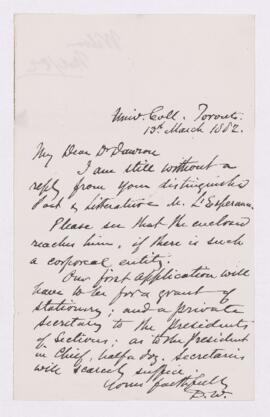 Univ. Coll. Toronto.
13th March 1882.
My Dear Dr Dawson
I am still without a
reply from your distinguished
Poet & Litterateur M. L'Esperance.
Please see that the enclosed
reaches him, if there is such
a corporeal entity.
Our first application will
have to be for a grant of
stationery; and a private
secretary to the Presidents
of Sections; as to the President
in Chief, half a doz. secretaries
will scarcely suffice
Yours faithfully
D. W.